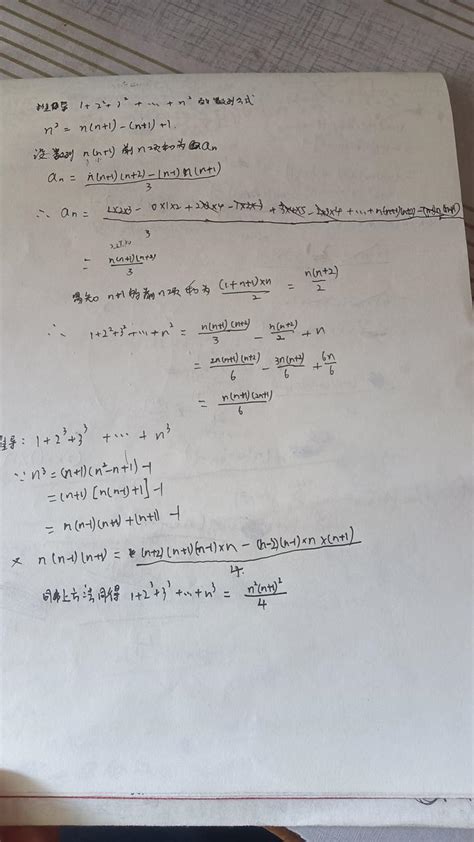 推导 1+2²+3²+⋯+n² 的数列公式
n² = n(n+1)-(n+1)+1
设数列 n(n+1) 前n项和为 an
an = (n(n+1)(n+2)-(n-1)n(n+1))/3
∴ an = (1×2×3-0×1×2+2×3×4-1×2×3+3×4×5-2×3×4+⋯+n(n+1)(n+2)-(n-1)n(n+1))/3
= n(n+1)(n+2)/3
易知 n+1 的前n项和为 (1+n+1)×n/2 = n(n+2)/2
∴ 1+2²+3²+⋯+n² = n(n+1)(n+2)/3 - n(n+2)/2 + n
= 2n(n+1)(n+2)/6 - 3n(n+2)/6 + 6n/6
= n(n+1)(2n+1)/6
推导: 1+2³+3³+⋯+n³
∵ n³ = (n+1)(n²-n+1)-1
= (n+1)[n(n-1)+1]-1
= n(n-1)(n+1)+(n+1)-1
× n(n-1)(n+1) = ((n+2)(n+1)(n-1)×n-(n-2)(n-1)×n×(n+1))/4
同上方法可得 1+2³+3³+⋯+n³ = n²(n+1)²/4